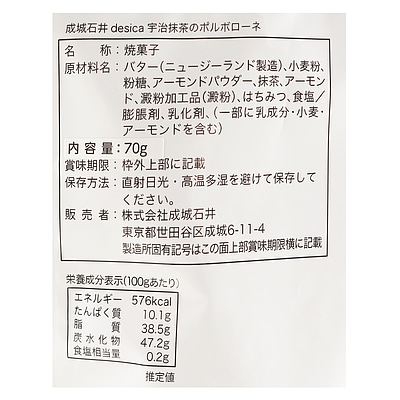 成城石井 desica 宇治抹茶のポルボローネ
名 称：焼菓子
原材料名：バター（ニュージーランド製造）、小麦粉、
粉糖、アーモンドパウダー、抹茶、アーモン
ド、澱粉加工品（澱粉）、はちみつ、食塩／
膨脹剤、乳化剤、（一部に乳成分・小麦・
アーモンドを含む）
内 容 量：70g
賞味期限：枠外上部に記載
保存方法：直射日光・高温多湿を避けて保存して
ください。
販 売 者：株式会社成城石井
東京都世田谷区成城6-11-4
製造所固有記号はこの面上部賞味期限横に記載
栄養成分表示(100gあたり)
エネルギー 576kcal
たんぱく質 10.1g
脂 質 38.5g
炭 水 化 物 47.2g
食塩相当量 0.2g
推定値